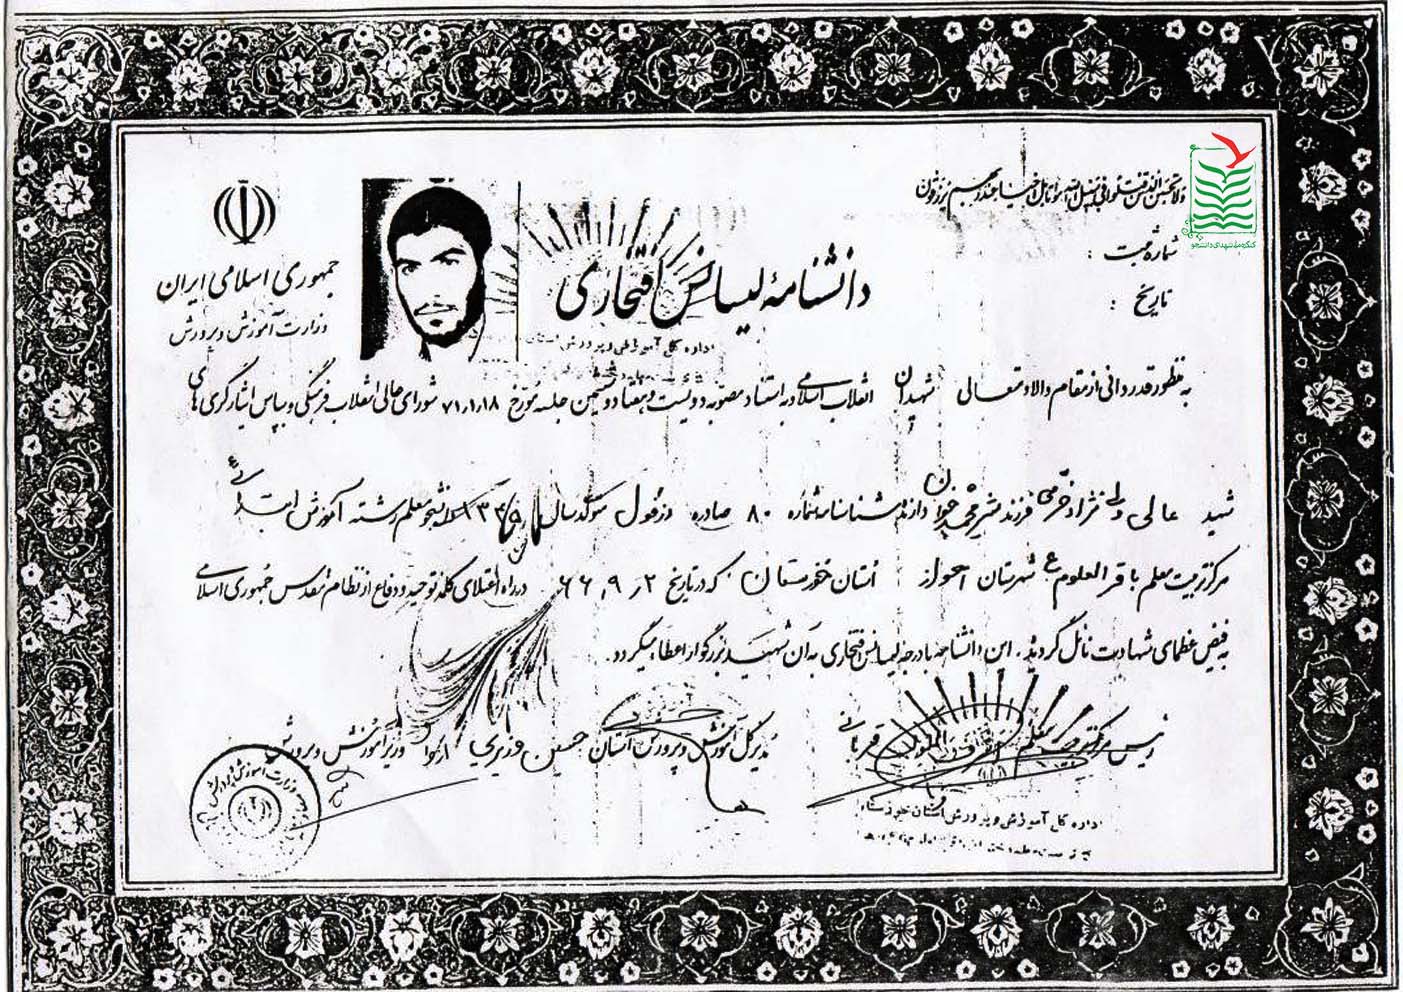 ولا تحسبن الذین قتلوا فی سبیل الله امواتا بل احیاء عند ربهم یرزقون
کنگره ملی شهدای دانشجو
شماره ثبت :
تاریخ :
جمهوری اسلامی ایران
وزارت آموزش و پرورش
دانشنامهٔ لیسانس افتخاری
اداره کل آموزش و پرورش استان
به منظور قدردانی از مقام والا و متعالی شهیدان انقلاب اسلامی و به استناد مصوبه دویست و هفتاد و پنجمین جلسه مورخ ۷۱،۱،۱۸ شورای عالی انقلاب فرهنگی و بپاس ایثارگری های
شهید عالی نژاد فرزند دارنده شناسنامه شماره ۸۰ صادره دزفول متولد سال دانشجو معلم رشته آموزش ابتدائی
مرکز تربیت معلم باقرالعلوم ع شهرستان اهواز استان خوزستان که در تاریخ ۶۶،۹،۲ در راه اعتلای کلمه توحید و دفاع از نظام مقدس جمهوری اسلامی
به فیض عظمای شهادت نائل گردید. این دانشنامه با درجه لیسانس افتخاری به آن شهید بزرگوار اعطاء میگردد.
رئیس مرکز تربیت معلم باقرالعلوم قربانی
مدیرکل آموزش و پرورش استان حسین وزیری
از طرف وزیر آموزش و پرورش
اداره کل آموزش و پرورش استان خوزستان